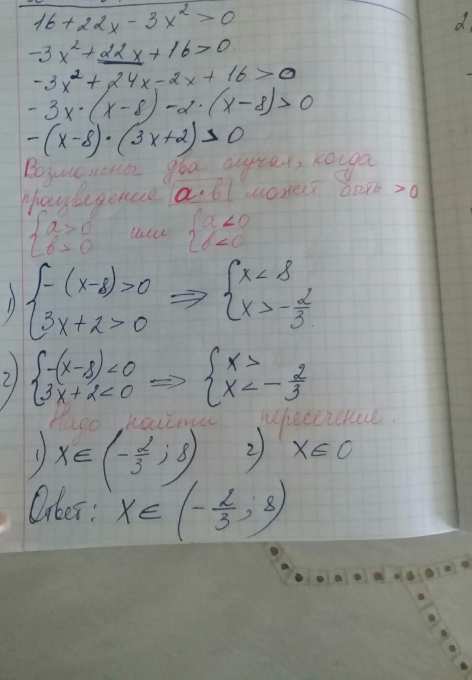 16 + 22x - 3x² > 0
-3x² + 22x + 16 > 0
-3x² + 24x - 2x + 16 > 0
-3x · (x-8) - 2 · (x-8) > 0
-(x-8) · (3x+2) > 0
Возможны два случая, когда
произведение |a·b| может быть > 0
{a > 0 или {a < 0
{b > 0 {b < 0
1) {-(x-8) > 0 ⇒ {x < 8
{3x+2 > 0 {x > -2/3.
2) {-(x-8) < 0 ⇒ {x >
{3x+2 < 0 {x < -2/3
Надо найти пересечение.
1) x ∈ (-2/3; 8) 2) x ∈ 0
Ответ: x ∈ (-2/3; 8)